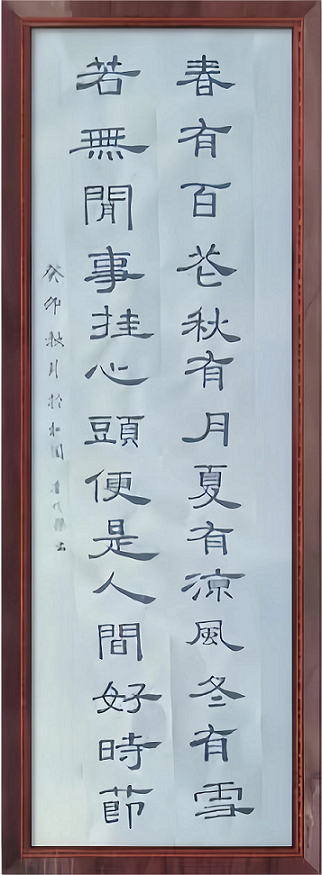 春有百花秋有月夏有涼風冬有雪
若無閒事挂心頭便是人間好時節
癸卯秋月於